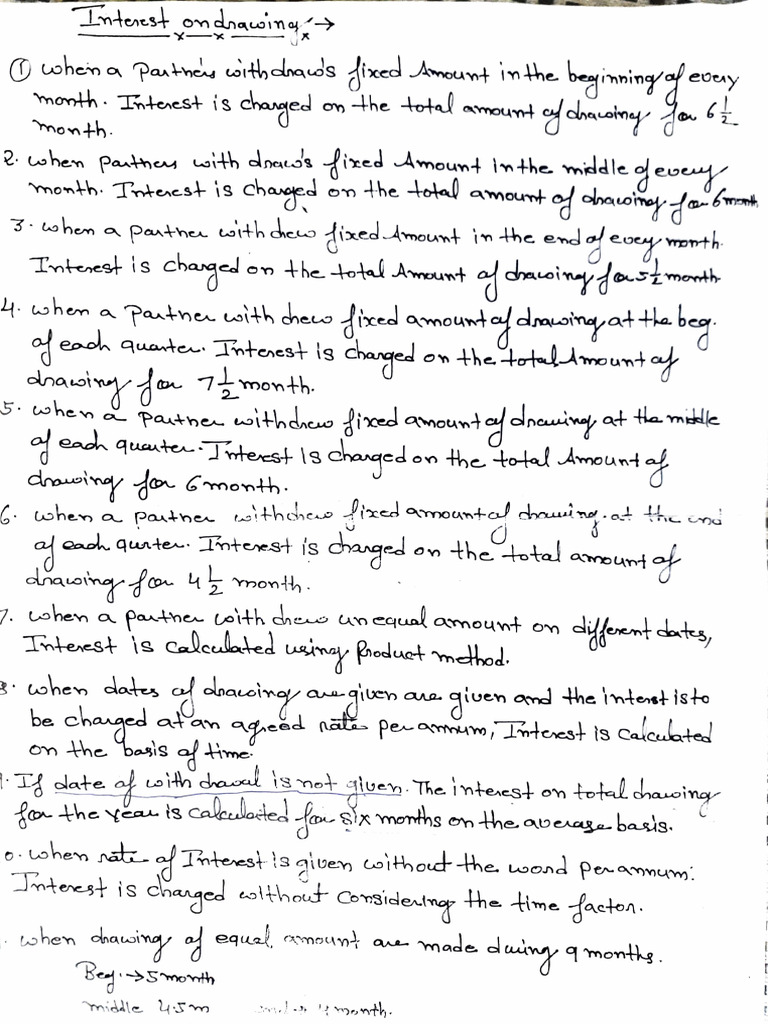 Interest on drawing →
① when a Partners withdraw's fixed Amount in the beginning of every
month. Interest is charged on the total amount of drawing for 6 1/2
month.
2. when Partners with draw's fixed Amount in the middle of every
month. Interest is charged on the total amount of drawing for 6 month
3. when a partner with drew fixed Amount in the end of evey month.
Interest is charged on the total Amount of drawing for 5 1/2 month
4. when a Partner with drew fixed amount of drawing at the beg.
of each quarter. Interest is charged on the total Amount of
drawing for 7 1/2 month.
5. when a partner withdrew fixed amount of drawing at the middle
of each quarter. Interest is charged on the total Amount of
drawing for 6 month.
6. when a partner withdrew fixed amount of drawing. at the end
of each qurter. Interest is charged on the total amount of
drawing for 4 1/2 month.
7. when a partner with drew unequal amount on different dates,
Interest is calculated using Product method.
8. when dates of drawing are given are given and the interst is to
be charged at an agreed rate per annum, Interest is calculated
on the basis of time.
If date of with drawal is not given. The interest on total drawing
for the year is calculated for six months on the average basis.
0. when rate of Interest is given without the word per annum:
Interest is charged without considering the time factor.
when drawing of equal amount are made during 9 months.
Beg. → 5 month
middle 4.5 m 4 month.